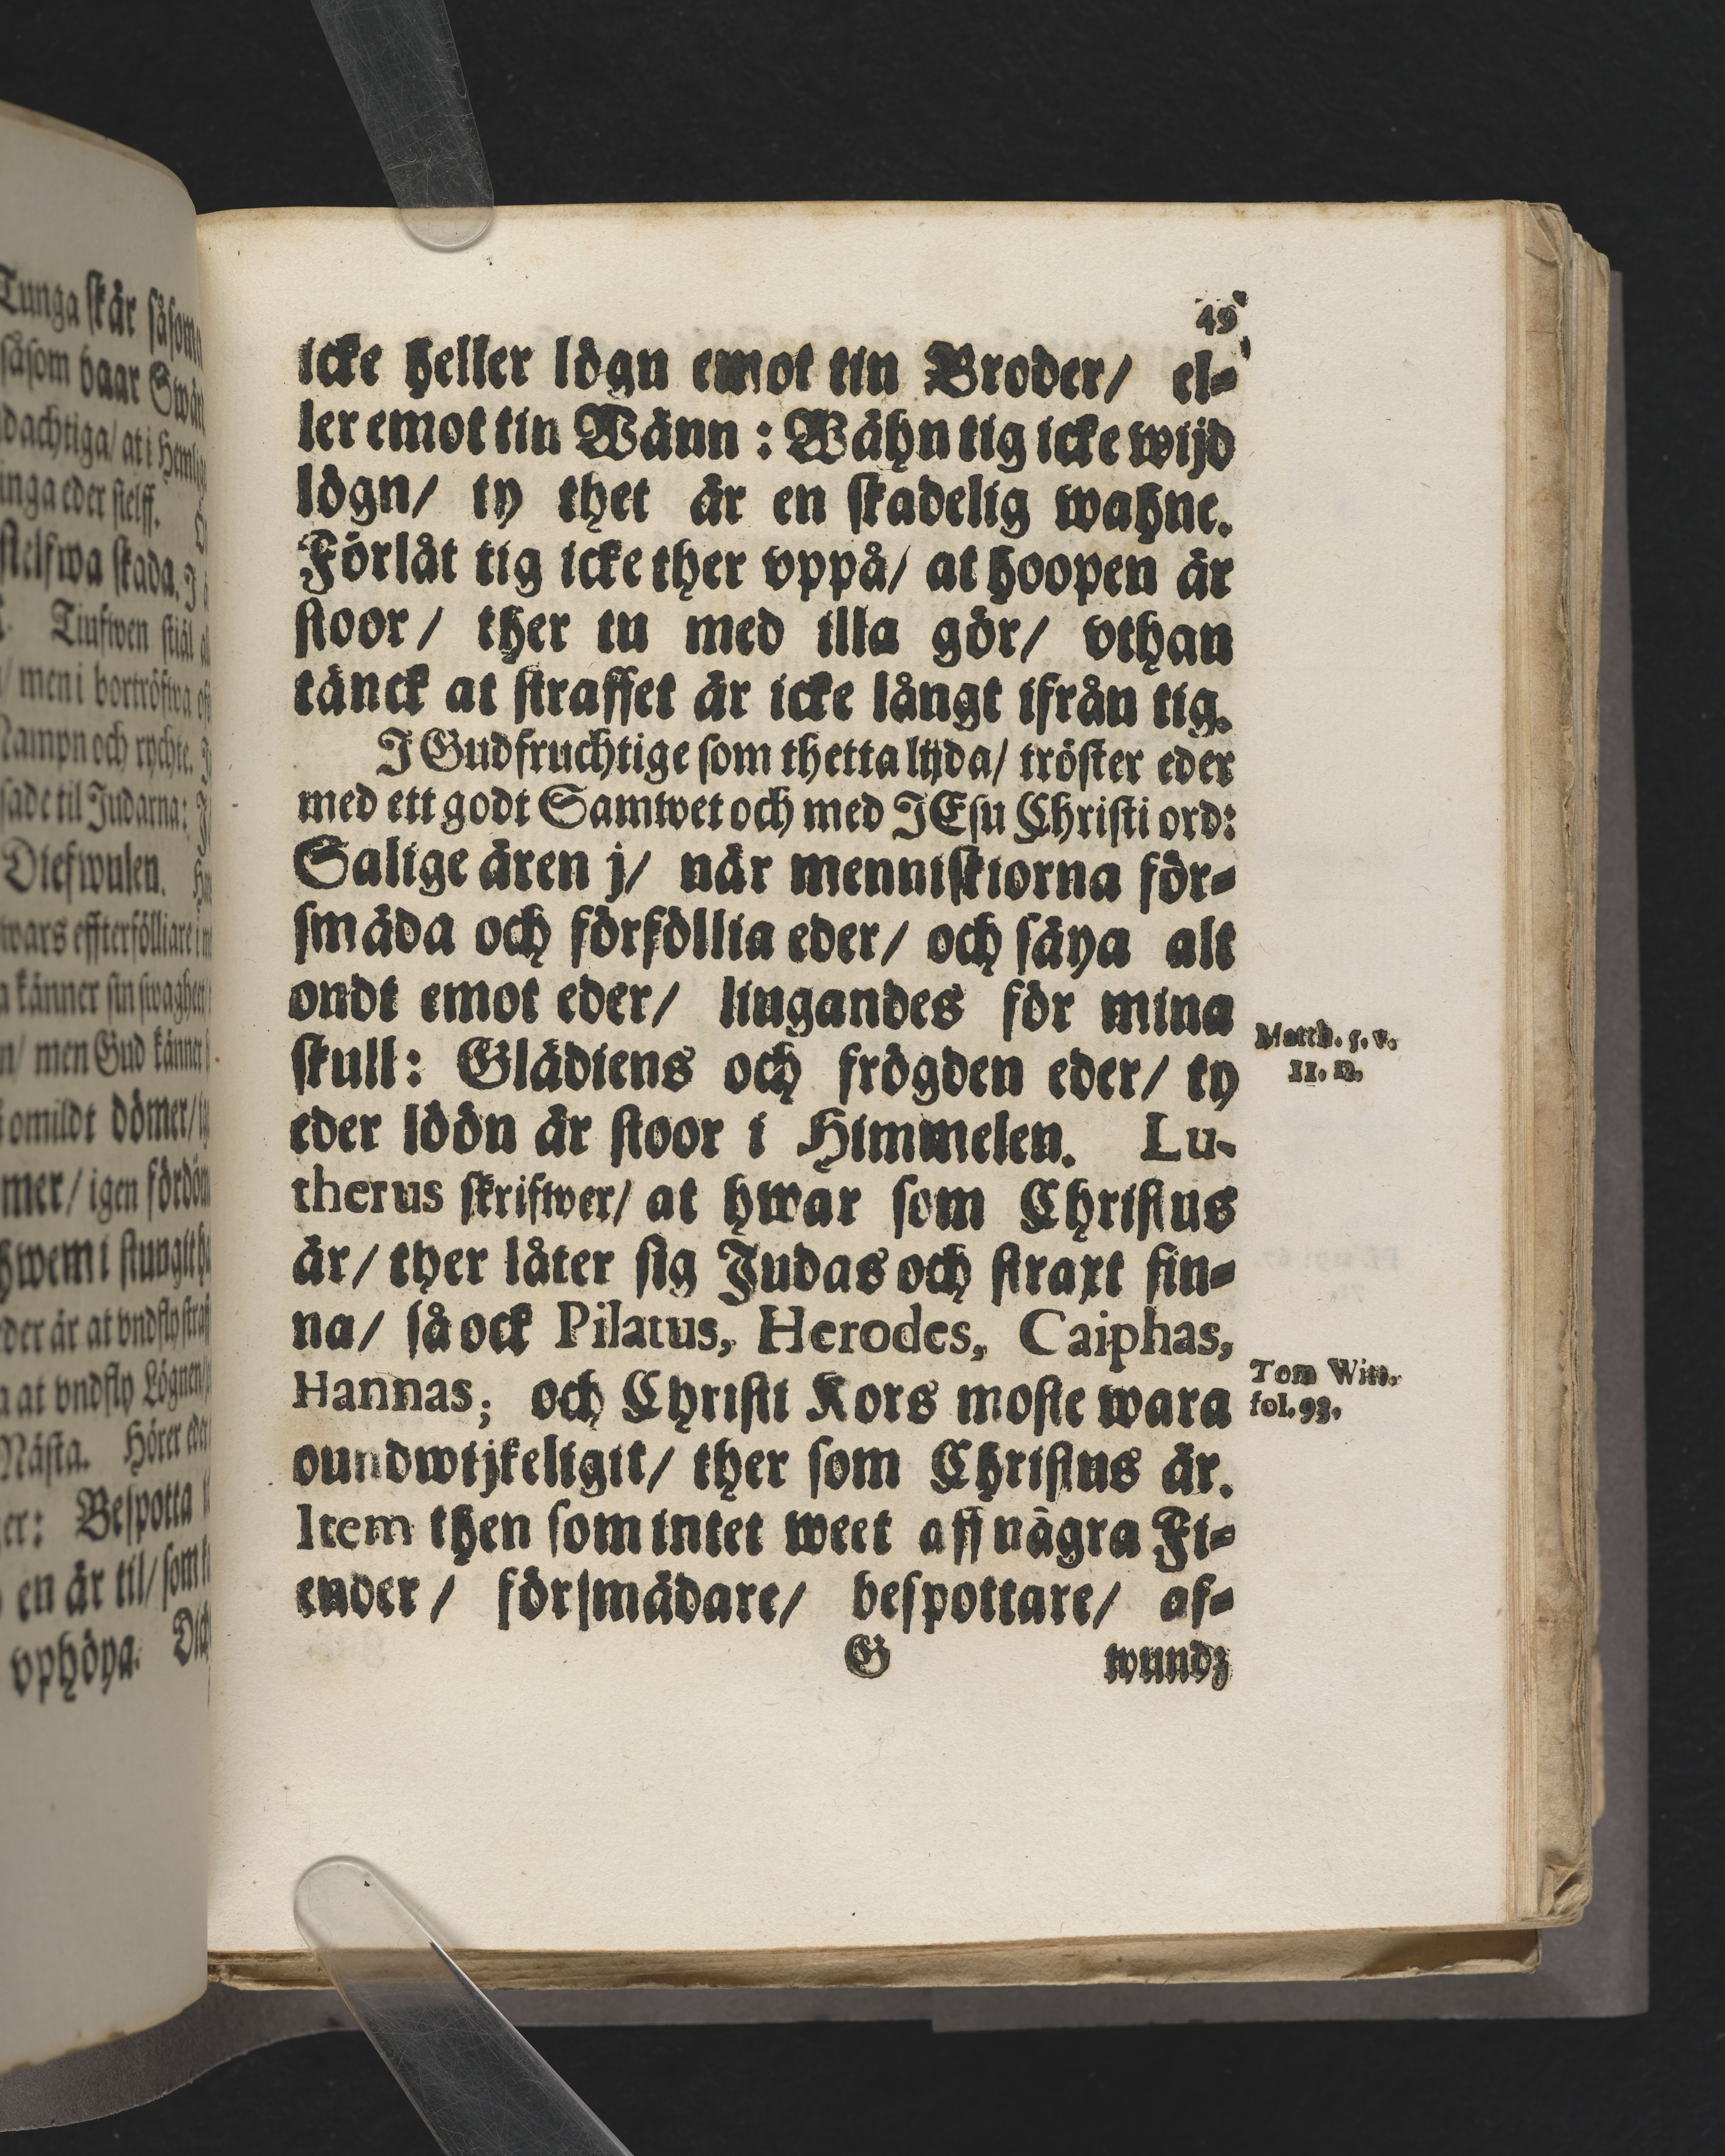 Tunga skär såsom
såsom baar Swär
dachtiga/ at i Heml
inga eder sielff.
sielfwa skada. J
Tiufwen stiäl
/ men i bortröfwa
Nampn och rychte.
sade til Judarna:
Diefwulen.
wars effterfölliare
känner sin swaghet
n/ men Gud känner
omildt dömer/
mer/ igen fördöm
hwem i stungit
eder är at vndfly straf
a at vndfly Lögnen/
Nästa. Hörer eder
er: Bespotta
en är til/ som
vphöya.
49
icke heller lögn emot tin Broder/ el-
ler emot tin Wänn: Wähn tig icke wijd
lögn/ ty thet är en skadelig wahne.
Förlåt tig icke ther vppå/ at hoopen är
stoor/ ther tu med illa gör/ vthan
tänck at straffet är icke långt ifrån tig.
J Gudfruchtige som thetta lijda/ tröster eder
med ett godt Samwet och med JEsu Christi ord:
Salige ären j/ när menniskiorna för-
smäda och förföllia eder/ och säya alt
ondt emot eder/ liugandes för mina
skull: Glädiens och frögden eder/ ty
eder löön är stoor i Himmelen. Lu-
therus skrifwer/ at hwar som Christus
är/ ther låter sig Judas och straxt fin-
na/ så ock Pilatus, Herodes, Caiphas,
Hannas; och Christi Kors moste wara
oundwijkeligit/ ther som Christus är.
Item then som intet weet aff några Fi-
ender/ försmädare/ bespottare/ af-
G wundz
Matth. 5. v.
11. 12.
Tom Witt.
fol. 98.